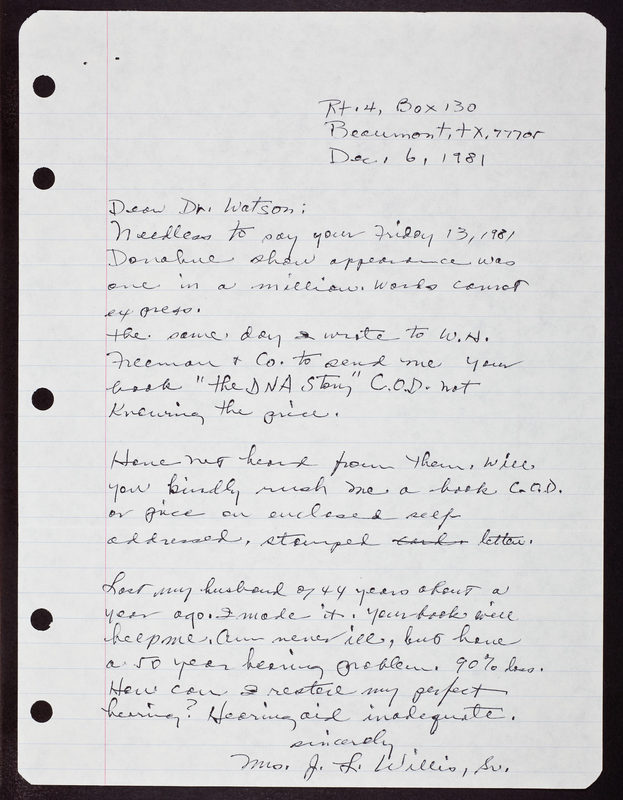 Rt. 4, Box 130
Beaumont, tx, 77705
Dec, 6, 1981
Dear Dr. Watson:
Needless to say your Friday 13, 1981
Donahue show appearance was
one in a million. Words cannot
express.
the same day I write to W. H.
Freeman & Co. to send me your
book "the DNA Story" C.O.D. not
Knowing the price.
Have not heard from them. Will
you kindly rush me a book C.O.D.
or price on enclosed self
addressed, stamped card letter.
Lost my husband of 44 years about a
year ago. I made it. Your book will
help me. Am never ill, but have
a 50 year hearing problem. 90% loss.
How can I restore my perfect
hearing? Hearing aid inadequate.
sincerely
Mrs. J. L. Willis, Sr.